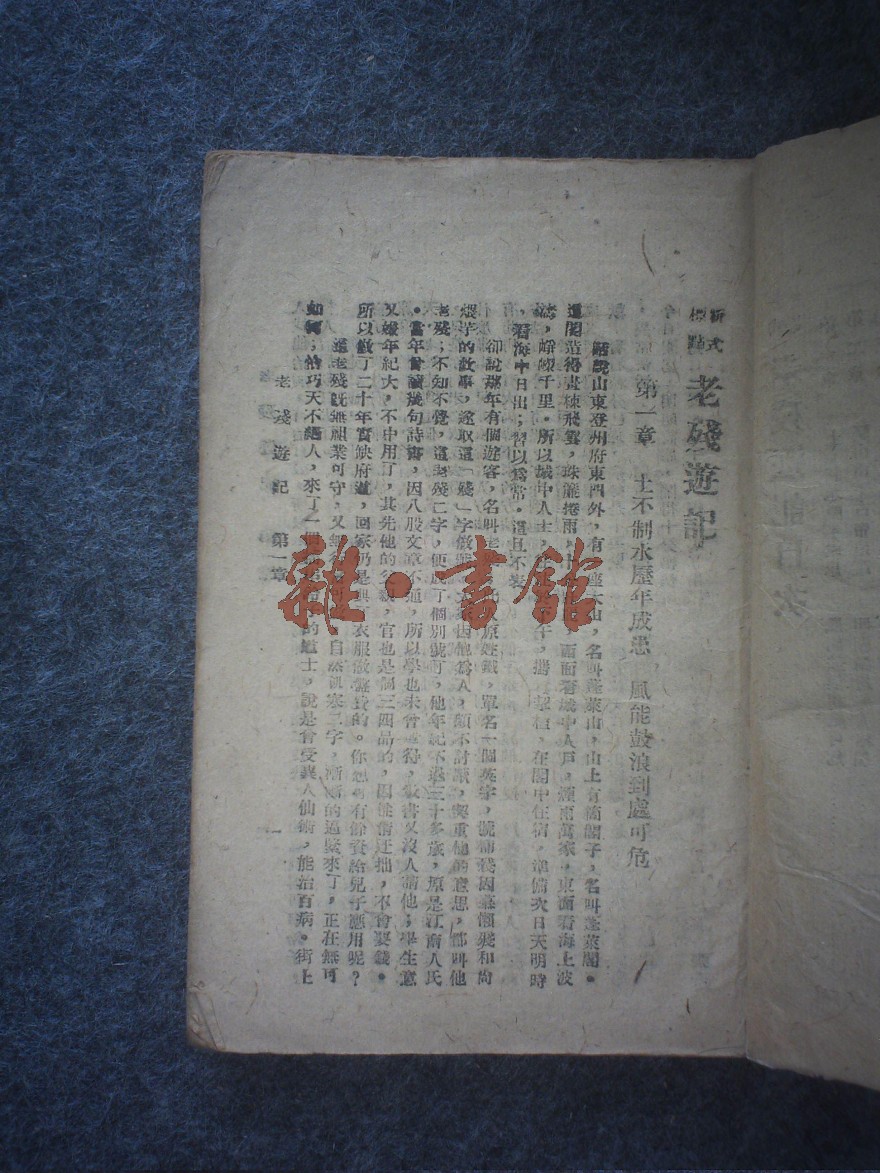 新式標點 老殘遊記
第一章 土不制水歷年成患 風能鼓浪到處可危
話說山東登州府東門外,有一座大山,名叫蓬萊山,山上有箇閣子,名叫蓬萊閣。
這閣造得畫棟飛雲,珠簾捲雨,西面看城中人戶,煙雨萬家,東面看海上波
濤,崢嶸千里。所以城中人士,午,攜 在閣中住宿,準備次日天明時
,看海中日出;習以爲常。這且不表
卻說那年有個遊客,名叫老 原姓鐵,單名一個英字,號補殘因慕懶殘和尙
煨芋的故事,遂取這「殘」字做 因他爲人,頗不討厭,契重他的意思,都叫他
老殘;不知不覺,這老殘二字,便成了個別號了,他年紀不過三十多歲,原是江南人氏
。當年曾讀幾句詩書,因八股文章不通,所以學也未曾 得,敎書又沒人請他;學生意
又嫌年紀大,不中用了,其先他的父親,官也是個三四品的,因性情迂拙,不會要錢。
所以做了二十年實缺府道,回家仍是 了衣服做盤費的。你想可有餘資給兒子應用呢?
這老殘旣無祖業可守,又無 自然飢寒二字,漸漸的逼緊來了,正在無可
如何;恰巧天不絕人,來了一個 的道士,說是曾受異人仙術,能治百病。街上
老殘遊記 第一章 一
雜·書館